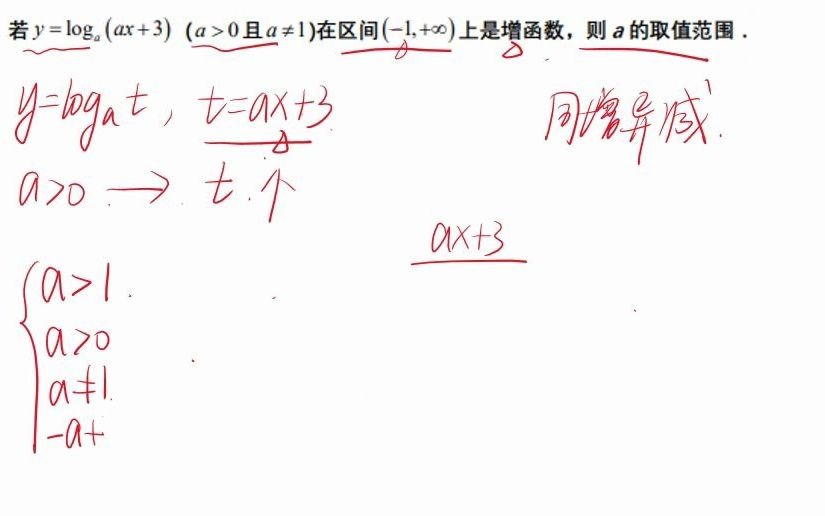 若 y=logₐ(ax+3) (a>0且a≠1)在区间(-1,+∞)上是增函数，则 a 的取值范围．
y=logₐt, t=ax+3
同增异减.
a>0 → t.↑
ax+3
a>1.
a>0
a≠1.
-a+